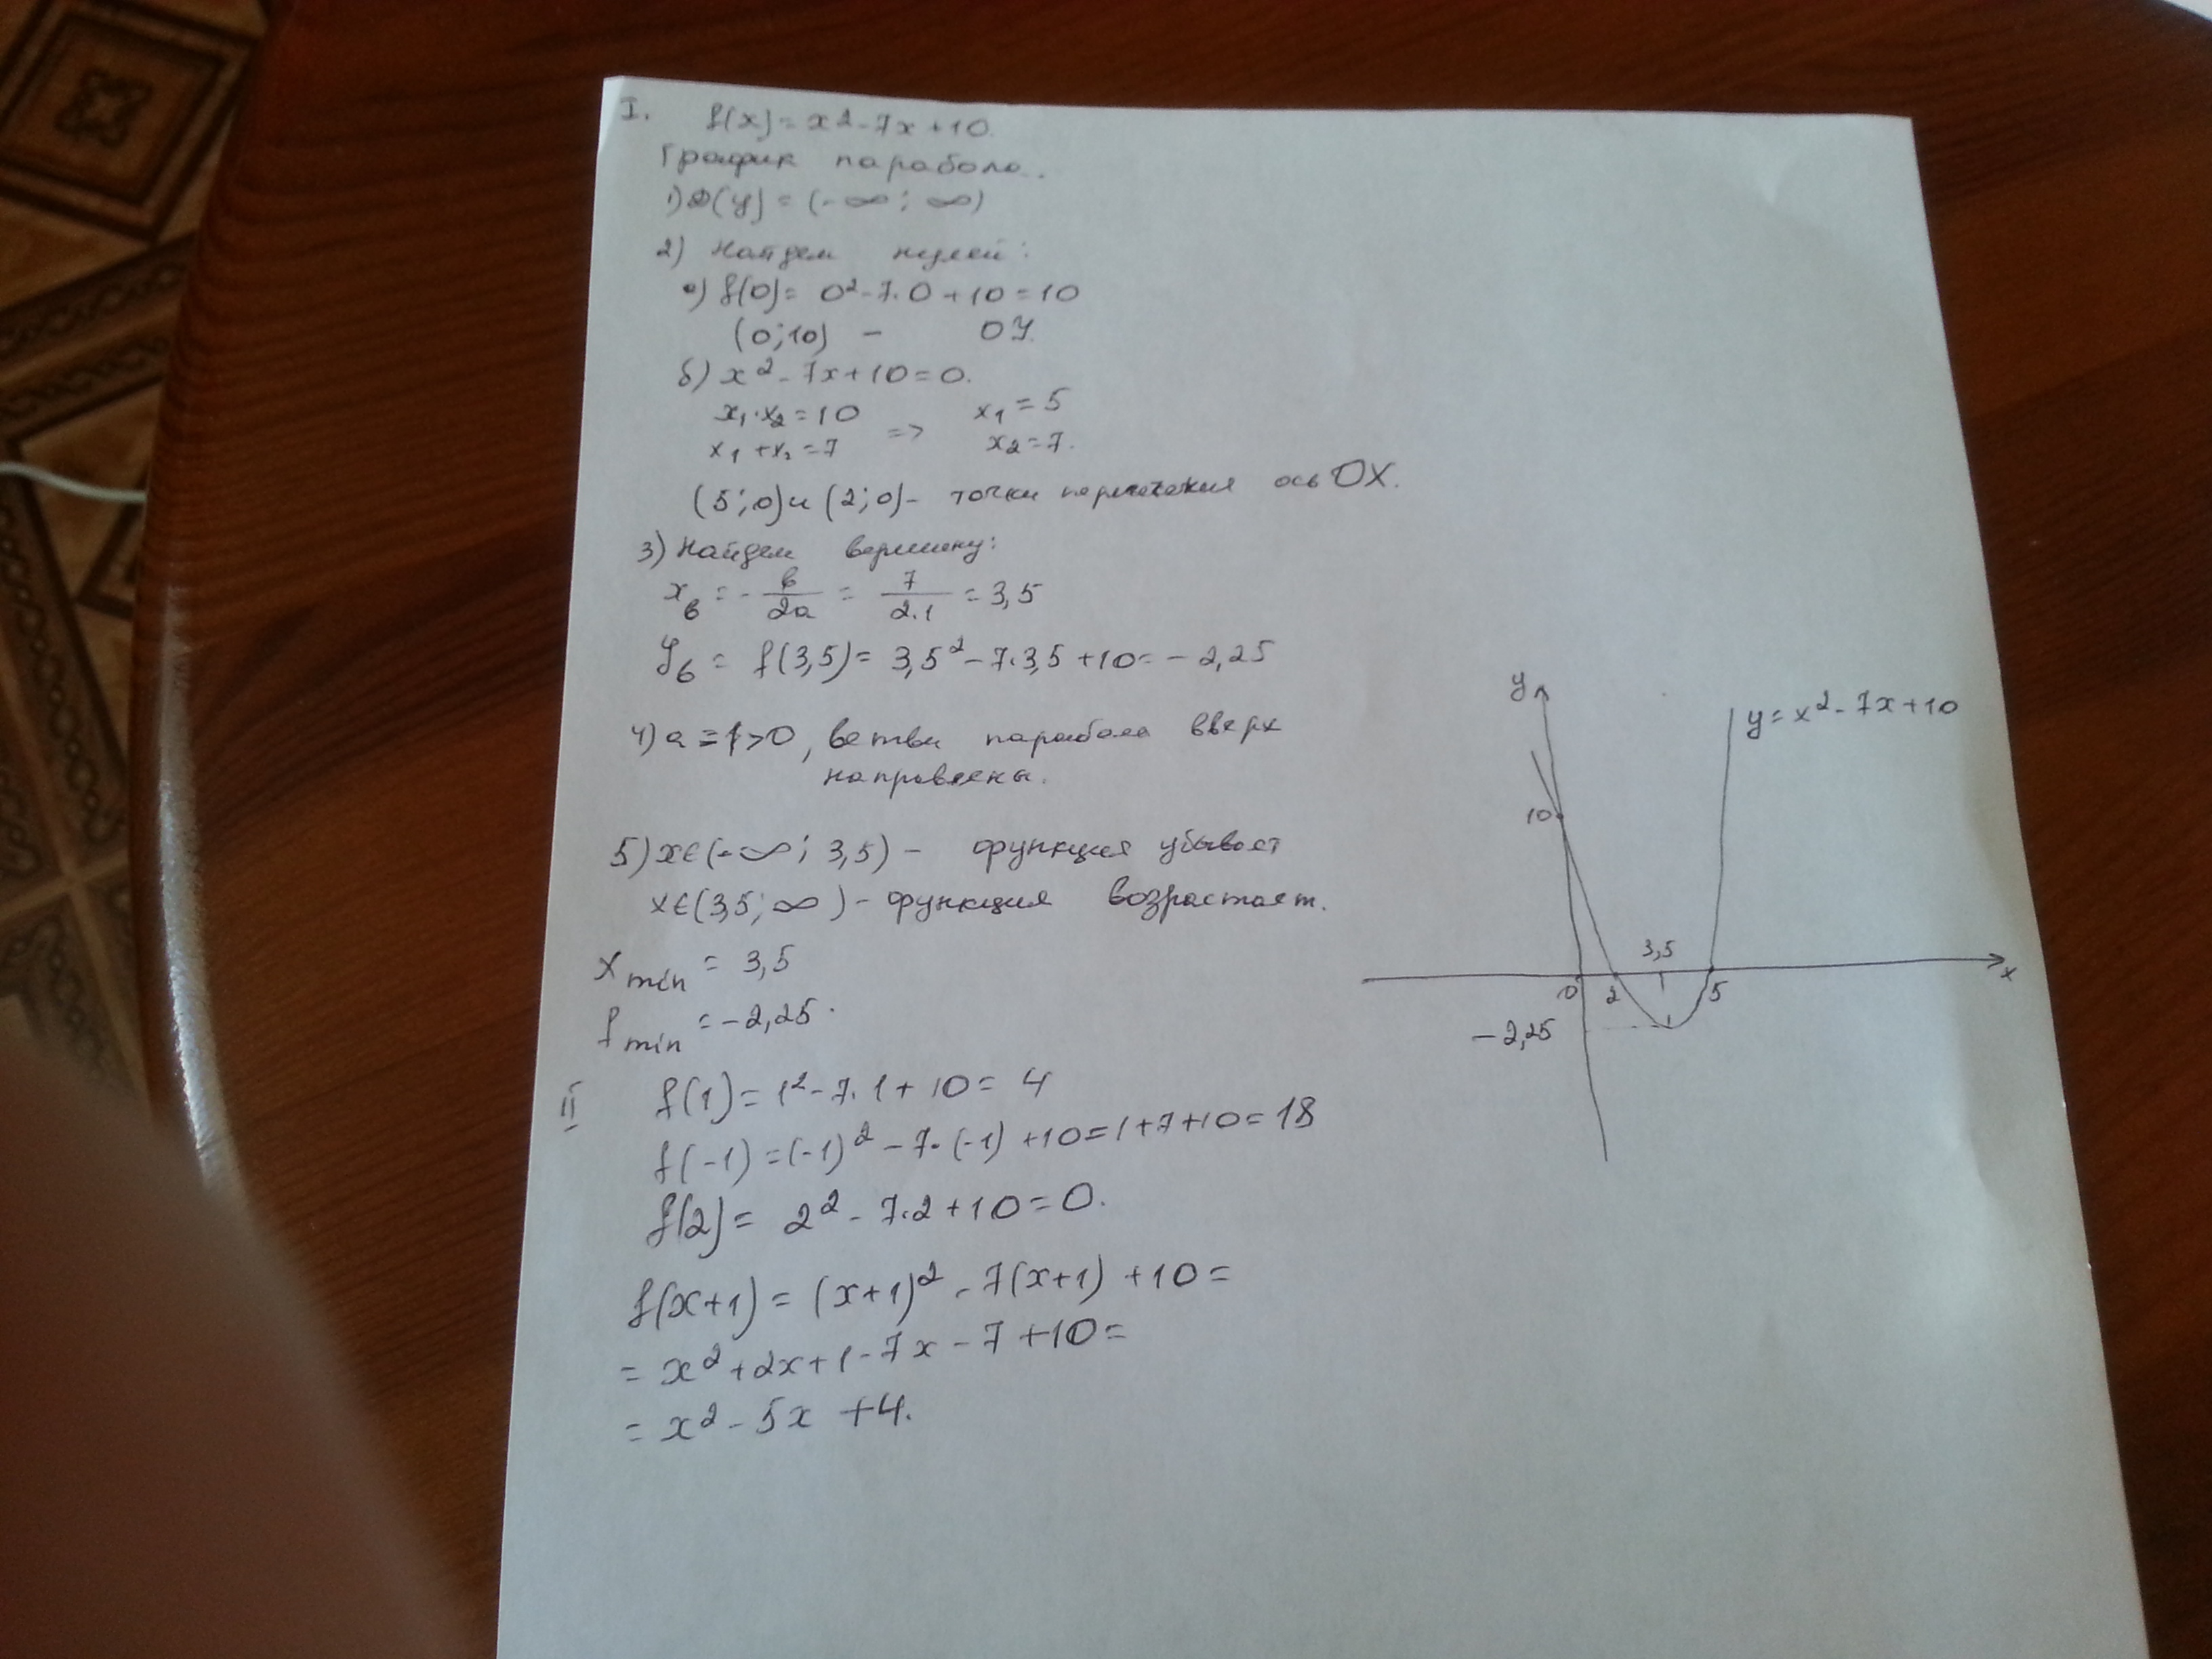 I. f(x)=x²-7x+10.
График парабола.
1) D(y)=(-∞; ∞)
2) Найдем нулей:
а) f(0)= 0²-7·0+10=10
(0;10) - OY.
б) x²-7x+10=0.
x₁·x₂=10 x₁=5
x₁+x₂=7 => x₂=7.
(5;0) и (2;0)- точки пересечения ось OX.
3) Найдем вершину:
xв = -в/2a = 7/2·1 = 3,5
yв = f(3,5)= 3,5²-7·3,5+10=-2,25
4) a=1>0, ветви парабола вверх
направлены.
5) x∈(-∞; 3,5) - функция убывает
x∈(3,5; ∞) - функция возрастает.
x min = 3,5
f min =-2,25.
II f(1)=1²-7·1+10=4
f(-1)=(-1)²-7·(-1)+10=1+7+10=18
f(2)= 2²-7·2+10=0.
f(x+1)=(x+1)²-7(x+1)+10=
= x²+2x+1-7x-7+10=
= x²-5x+4.
y
y=x²-7x+10
10
3,5
0 2 5 x
-2,25